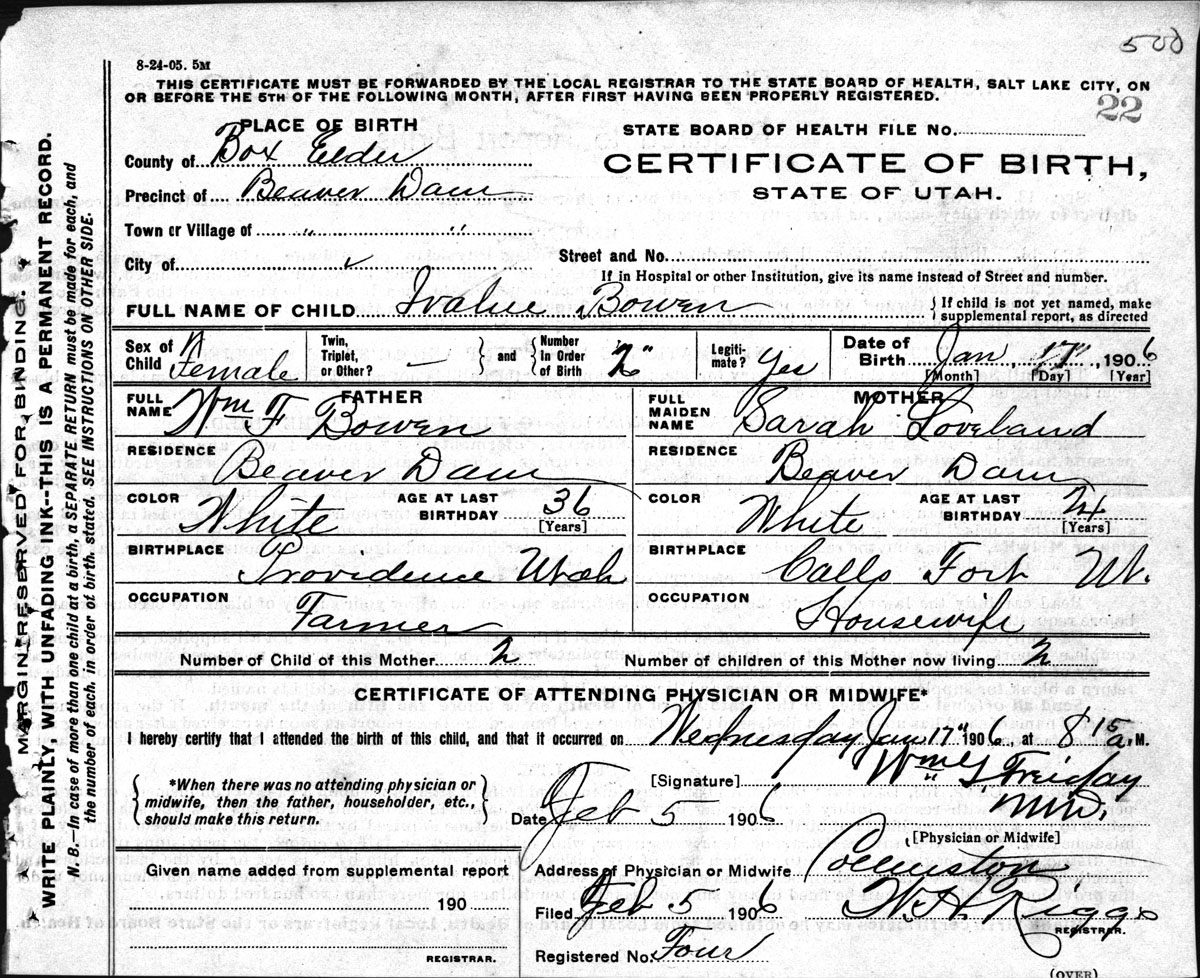 500
8-24-05. 5M
THIS CERTIFICATE MUST BE FORWARDED BY THE LOCAL REGISTRAR TO THE STATE BOARD OF HEALTH, SALT LAKE CITY, ON
OR BEFORE THE 5TH OF THE FOLLOWING MONTH, AFTER FIRST HAVING BEEN PROPERLY REGISTERED.
22
PLACE OF BIRTH
STATE BOARD OF HEALTH FILE No.
County of Box Elder
CERTIFICATE OF BIRTH,
Precinct of Beaver Dam
STATE OF UTAH.
Town or Village of " "
City of " Street and No.
If in Hospital or other Institution, give its name instead of Street and number.
FULL NAME OF CHILD Ivalue Bowen { If child is not yet named, make
supplemental report, as directed
Sex of Child Female
Twin, Triplet, or Other? — } and { Number In Order of Birth 2"
Legiti-mate? Yes
Date of Birth Jan 17", 1906
[Month] [Day] [Year]
FATHER
FULL NAME Wm F Bowen
MOTHER
FULL MAIDEN NAME Sarah Loveland
RESIDENCE Beaver Dam
RESIDENCE Beaver Dam
COLOR White AGE AT LAST BIRTHDAY 36 [Years]
COLOR White AGE AT LAST BIRTHDAY 24 [Years]
BIRTHPLACE Providence Utah
BIRTHPLACE Calls Fort Ut.
OCCUPATION Farmer
OCCUPATION Housewife
Number of Child of this Mother 2 Number of children of this Mother now living 2
CERTIFICATE OF ATTENDING PHYSICIAN OR MIDWIFE*
I hereby certify that I attended the birth of this child, and that it occurred on Wednesday Jan 17" 1906, at 8 15 a. M.
{ *When there was no attending physician or
midwife, then the father, householder, etc.,
should make this return. }
[Signature] Wm Friday
M.D.
Date Feb 5 1906
[Physician or Midwife]
Given name added from supplemental report
190
REGISTRAR.
Address of Physician or Midwife Collinston
Filed Feb 5 1906 W. H. Riggs
REGISTRAR.
Registered No. Four
(OVER)
MARGIN RESERVED FOR BINDING.
WRITE PLAINLY, WITH UNFADING INK--THIS IS A PERMANENT RECORD.
N. B.—In case of more than one child at a birth, a SEPARATE RETURN must be made for each, and
the number of each, in order of birth, stated. SEE INSTRUCTIONS ON OTHER SIDE.